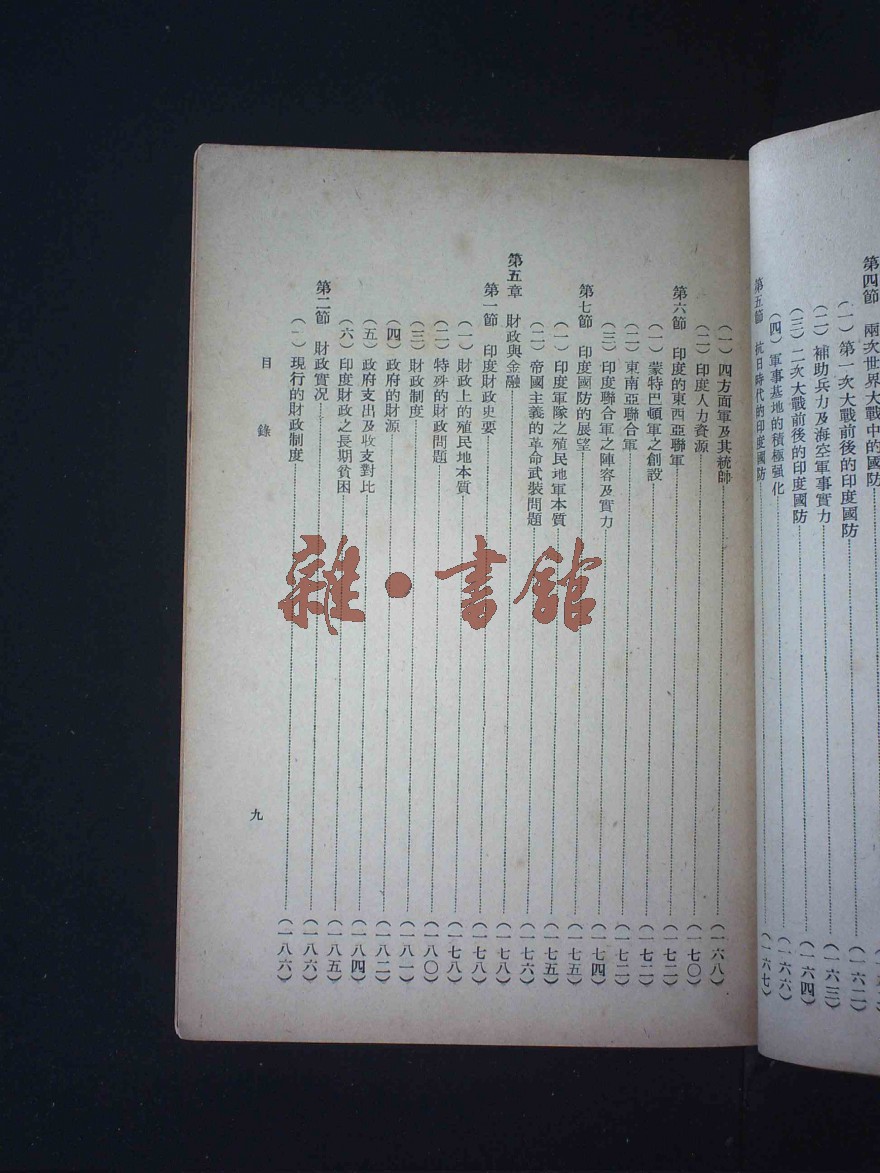 第四節 兩次世界大戰中的國防
(一) 第一次大戰前後的印度國防……(一六二)
(二) 補助兵力及海空軍事實力……(一六三)
(三) 二次大戰前後的印度國防……(一六四)
(四) 軍事基地的積極强化……(一六六)
第五節 抗日時代的印度國防……(一六七)
(一) 四方面軍及其統帥……(一六八)
(二) 印度人力資源……(一七〇)
第六節 印度的東西亞聯軍……(一七二)
(一) 蒙特巴頓軍之創設……(一七二)
(二) 東南亞聯合軍……(一七二)
(三) 印度聯合軍之陣容及實力……(一七四)
第七節 印度國防的展望……(一七五)
(一) 印度軍隊之殖民地軍本質……(一七五)
(二) 帝國主義的革命武裝問題……(一七六)
第五章 財政與金融……(一七八)
第一節 印度財政史要……(一七八)
(一) 財政上的殖民地本質……(一七八)
(二) 特殊的財政問題……(一八〇)
(三) 財政制度……(一八一)
(四) 政府的財源……(一八二)
(五) 政府支出及收支對比……(一八四)
(六) 印度財政之長期貧困……(一八五)
第二節 財政實況……(一八六)
(一) 現行的財政制度……(一八六)
目錄
九
雜·書館